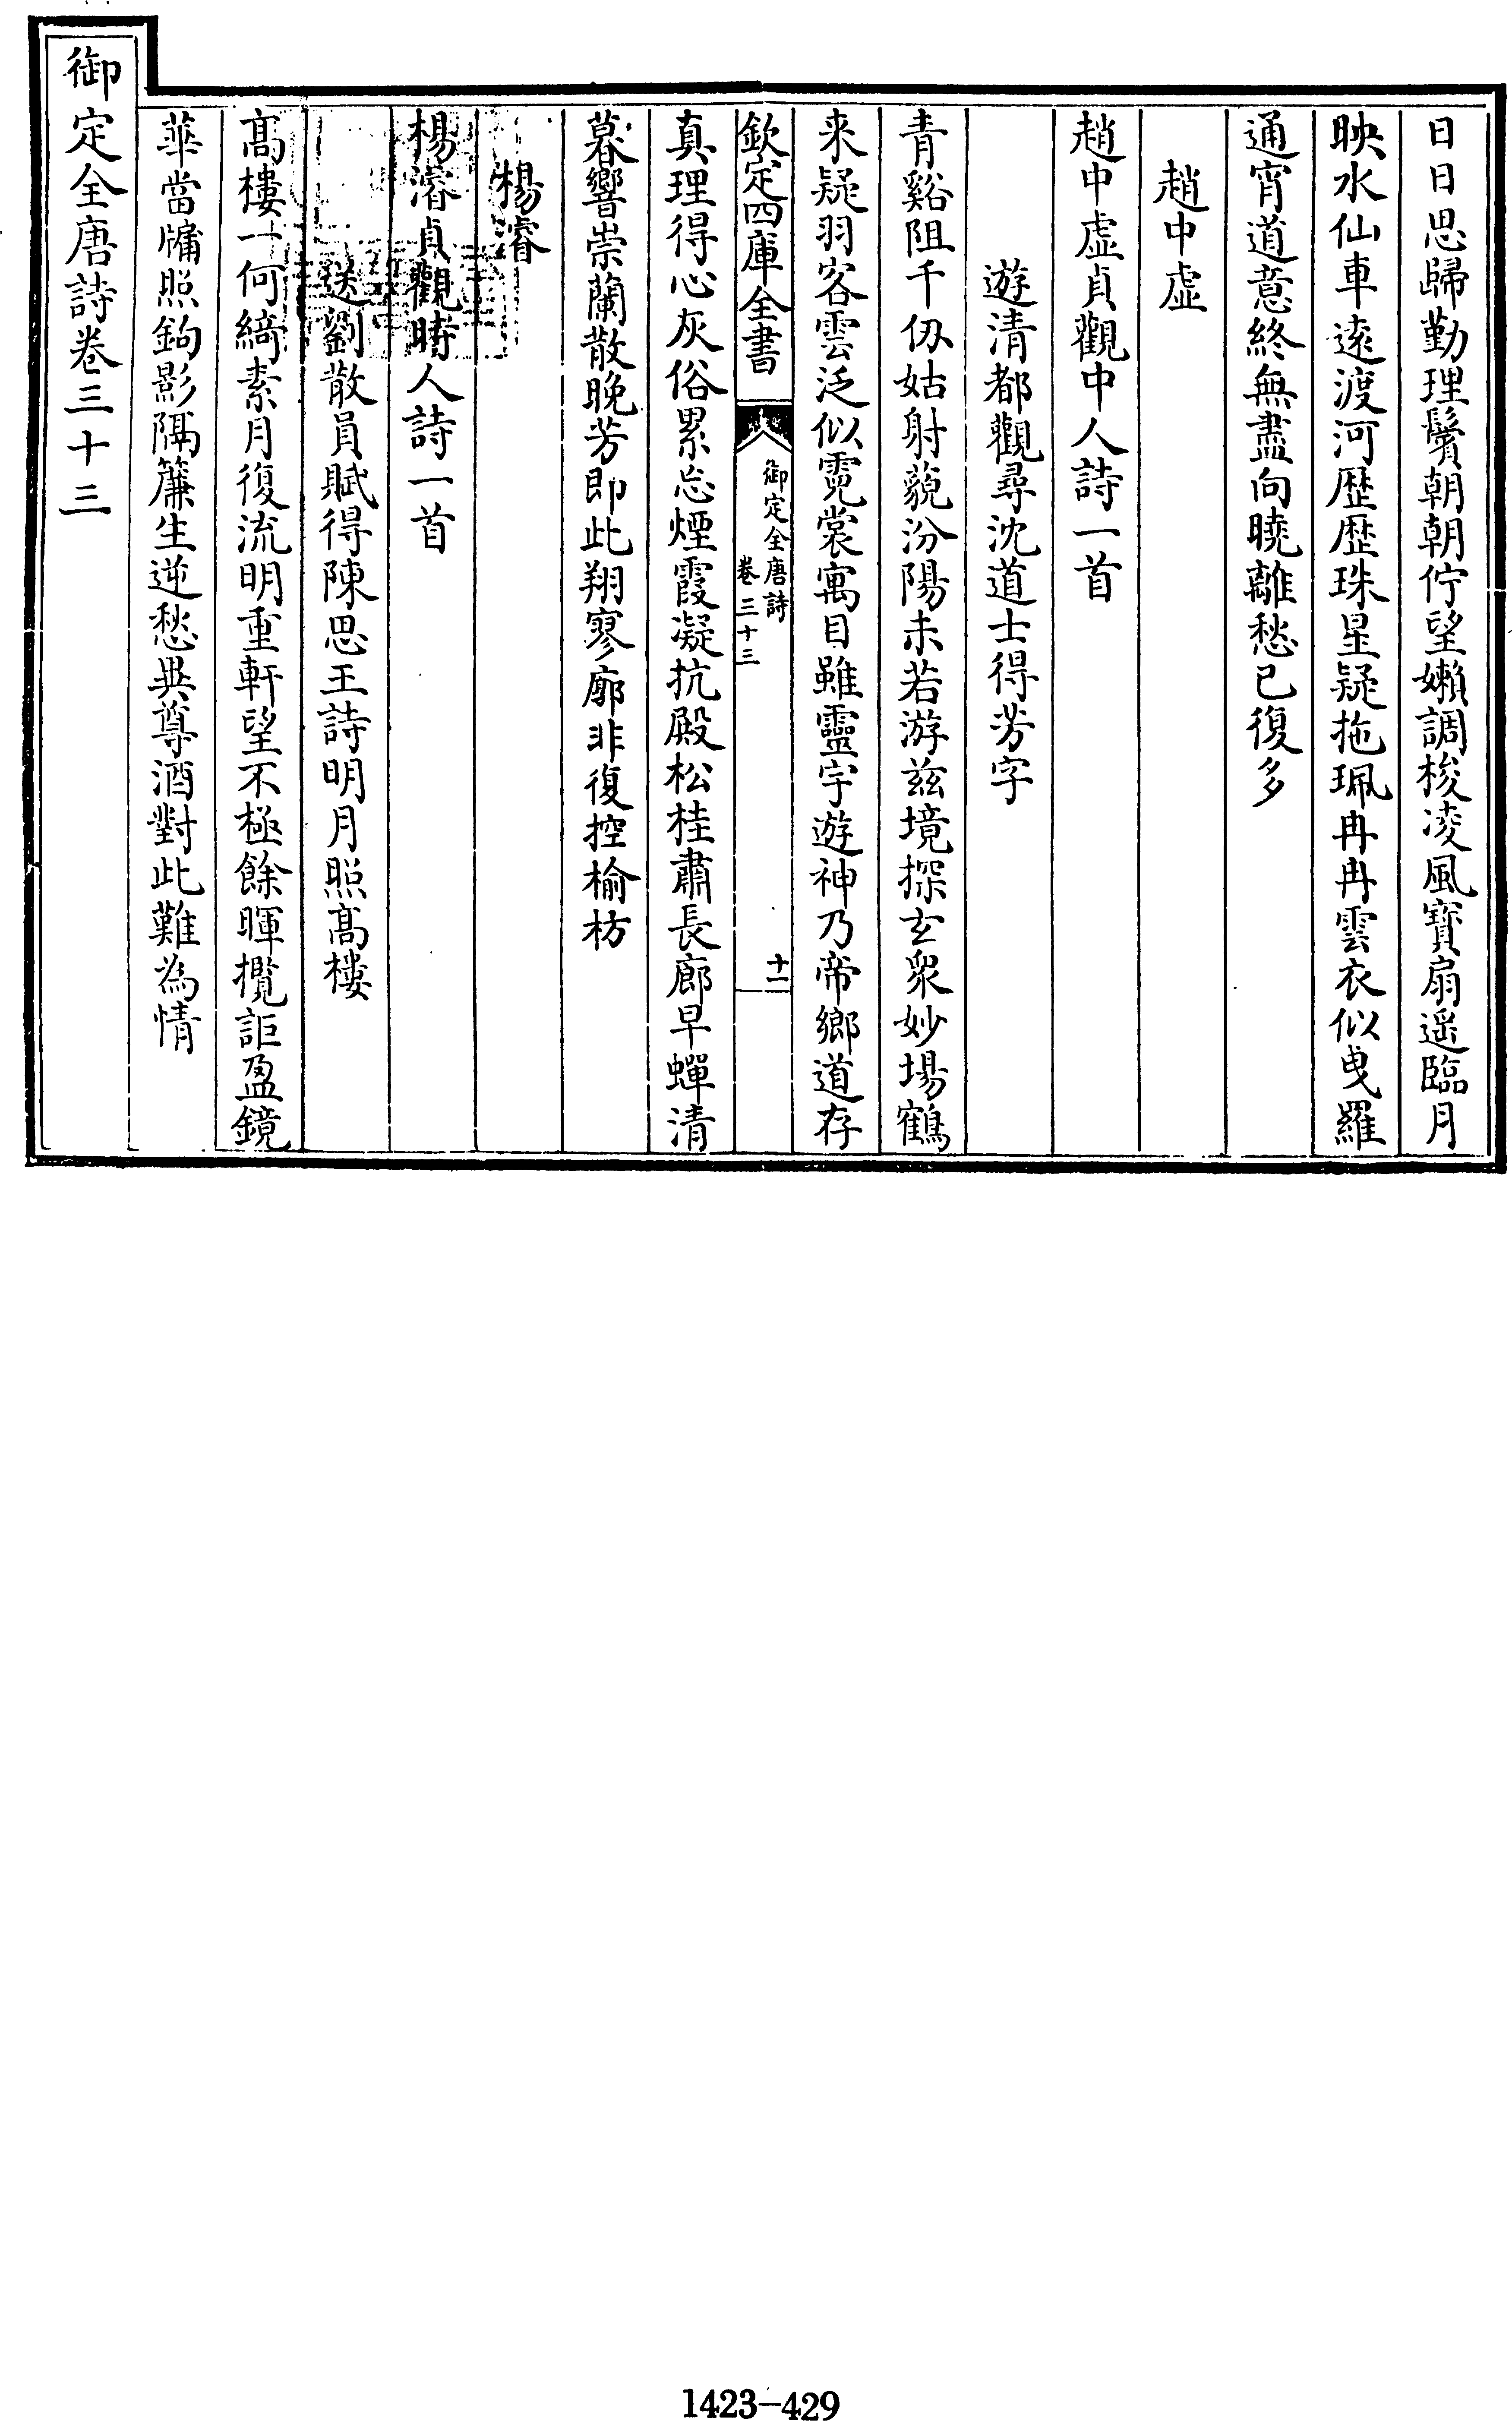 日日思歸勤理鬢朝朝佇望嬾調梭凌風寶扇遥臨月
映水仙車遠渡河歴歴珠星疑拖珮冉冉雲衣似曵羅
通宵道意終無盡向曉離愁已復多
趙中虛
趙中虛貞觀中人詩一首
遊清都觀尋沈道士得芳字
青谿阻千仭姑射藐汾陽未若游兹境探玄衆妙場鶴
来疑羽客雲泛似霓裳寓目雖靈宇遊神乃帝鄉道存
欽定四庫全書
御定全唐詩
卷三十三
十一
真理得心灰俗累忘煙霞凝抗殿松桂肅長廊早蟬清
暮響崇蘭散晚芳即此翔寥廓非復控榆枋
楊濬
楊濬貞觀時人詩一首
送劉散員賦得陳思王詩明月照髙樓
髙樓一何綺素月復流明重軒望不極餘暉攬詎盈鏡
華當牖照鉤影隔簾生逆愁異尊酒對此難為情
御定全唐詩卷三十三
1423-429